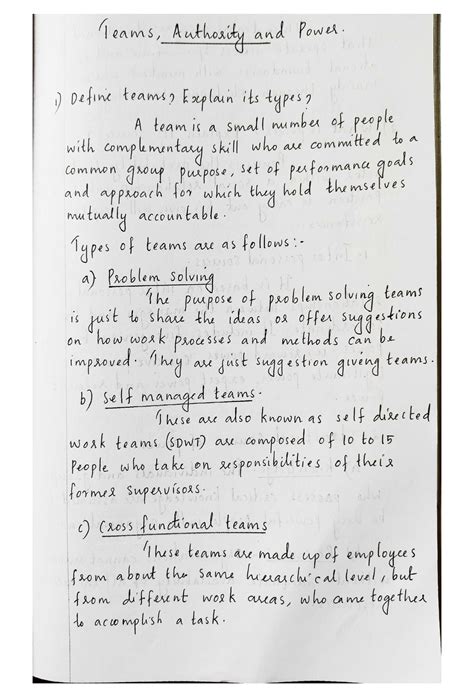 Teams, Authority and Power.
1) Define teams? Explain its types?
A team is a small number of people
with complementary skill who are committed to a
common group purpose, set of performance goals
and approach for which they hold themselves
mutually accountable.
Types of teams are as follows:-
a) Problem solving
The purpose of problem solving teams
is just to share the ideas or offer suggestions
on how work processes and methods can be
improved. They are just suggestion giving teams.
b) Self managed teams.
These are also known as self directed
work teams (SDWT) are composed of 10 to 15
People who take on responsibilities of their
former Supervisors.
c) Cross functional teams
These teams are made up of employees
from about the same hierarchical level, but
from different work areas, who came together
to accomplish a task.